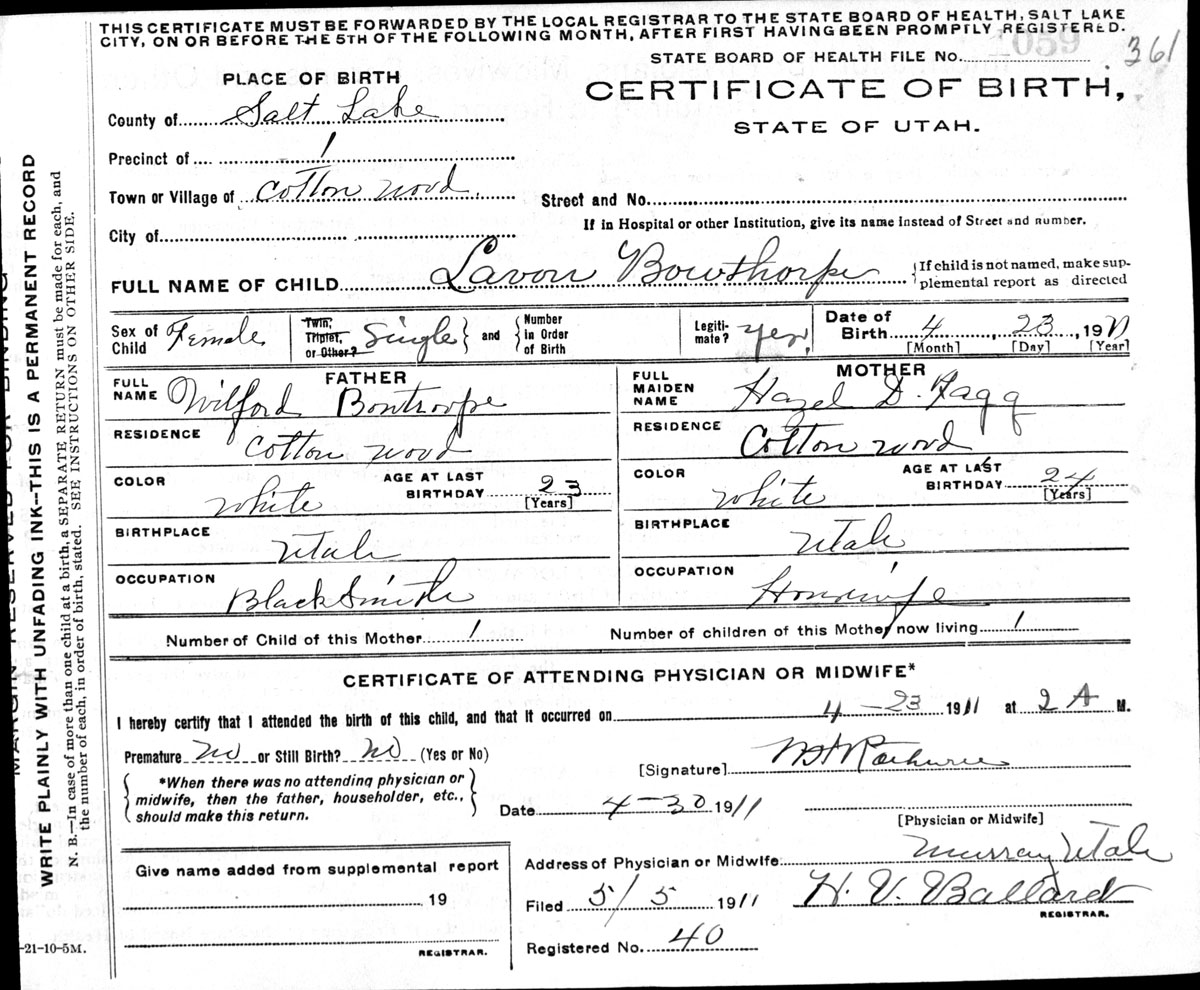 THIS CERTIFICATE MUST BE FORWARDED BY THE LOCAL REGISTRAR TO THE STATE BOARD OF HEALTH, SALT LAKE
CITY, ON OR BEFORE THE 5TH OF THE FOLLOWING MONTH, AFTER FIRST HAVING BEEN PROMPTLY REGISTERED.
1059
361
STATE BOARD OF HEALTH FILE No.
PLACE OF BIRTH
CERTIFICATE OF BIRTH,
STATE OF UTAH.
County of Salt Lake
Precinct of 1
Town or Village of Cotton wood
Street and No.
If in Hospital or other Institution, give its name instead of Street and number.
City of
FULL NAME OF CHILD Lavon Bowthorpe
{If child is not named, make sup-
plemental report as directed
Sex of Child Female
Twin, Triplet, or Other? Single} and {Number in Order of Birth
Legiti-mate? yes
Date of Birth 4, 23, 1911
[Month] [Day] [Year]
FATHER
MOTHER
FULL NAME Wilford Bontroope
FULL MAIDEN NAME Hazel D. Fagg
RESIDENCE Cotton wood
RESIDENCE Cotton wood
COLOR White
AGE AT LAST BIRTHDAY 23 [Years]
COLOR White
AGE AT LAST BIRTHDAY 24 [Years]
BIRTHPLACE Utah
BIRTHPLACE Utah
OCCUPATION BlackSmith
OCCUPATION Housewife
Number of Child of this Mother 1
Number of children of this Mother now living 1
CERTIFICATE OF ATTENDING PHYSICIAN OR MIDWIFE*
I hereby certify that I attended the birth of this child, and that it occurred on 4-23 1911 at 2 A M.
Premature no or Still Birth? no (Yes or No)
[Signature]
*When there was no attending physician or
midwife, then the father, householder, etc.,
should make this return.
Date 4-30 1911
[Physician or Midwife]
Give name added from supplemental report
19
REGISTRAR.
Address of Physician or Midwife Murray Utah
Filed 5/5 1911 H. V. Ballard
REGISTRAR.
Registered No. 40
-21-10-5M.
MARGIN RESERVED FOR BINDING
WRITE PLAINLY WITH UNFADING INK--THIS IS A PERMANENT RECORD
N. B.—In case of more than one child at a birth, a SEPARATE RETURN must be made for each, and
the number of each, in order of birth, stated. SEE INSTRUCTIONS ON OTHER SIDE.